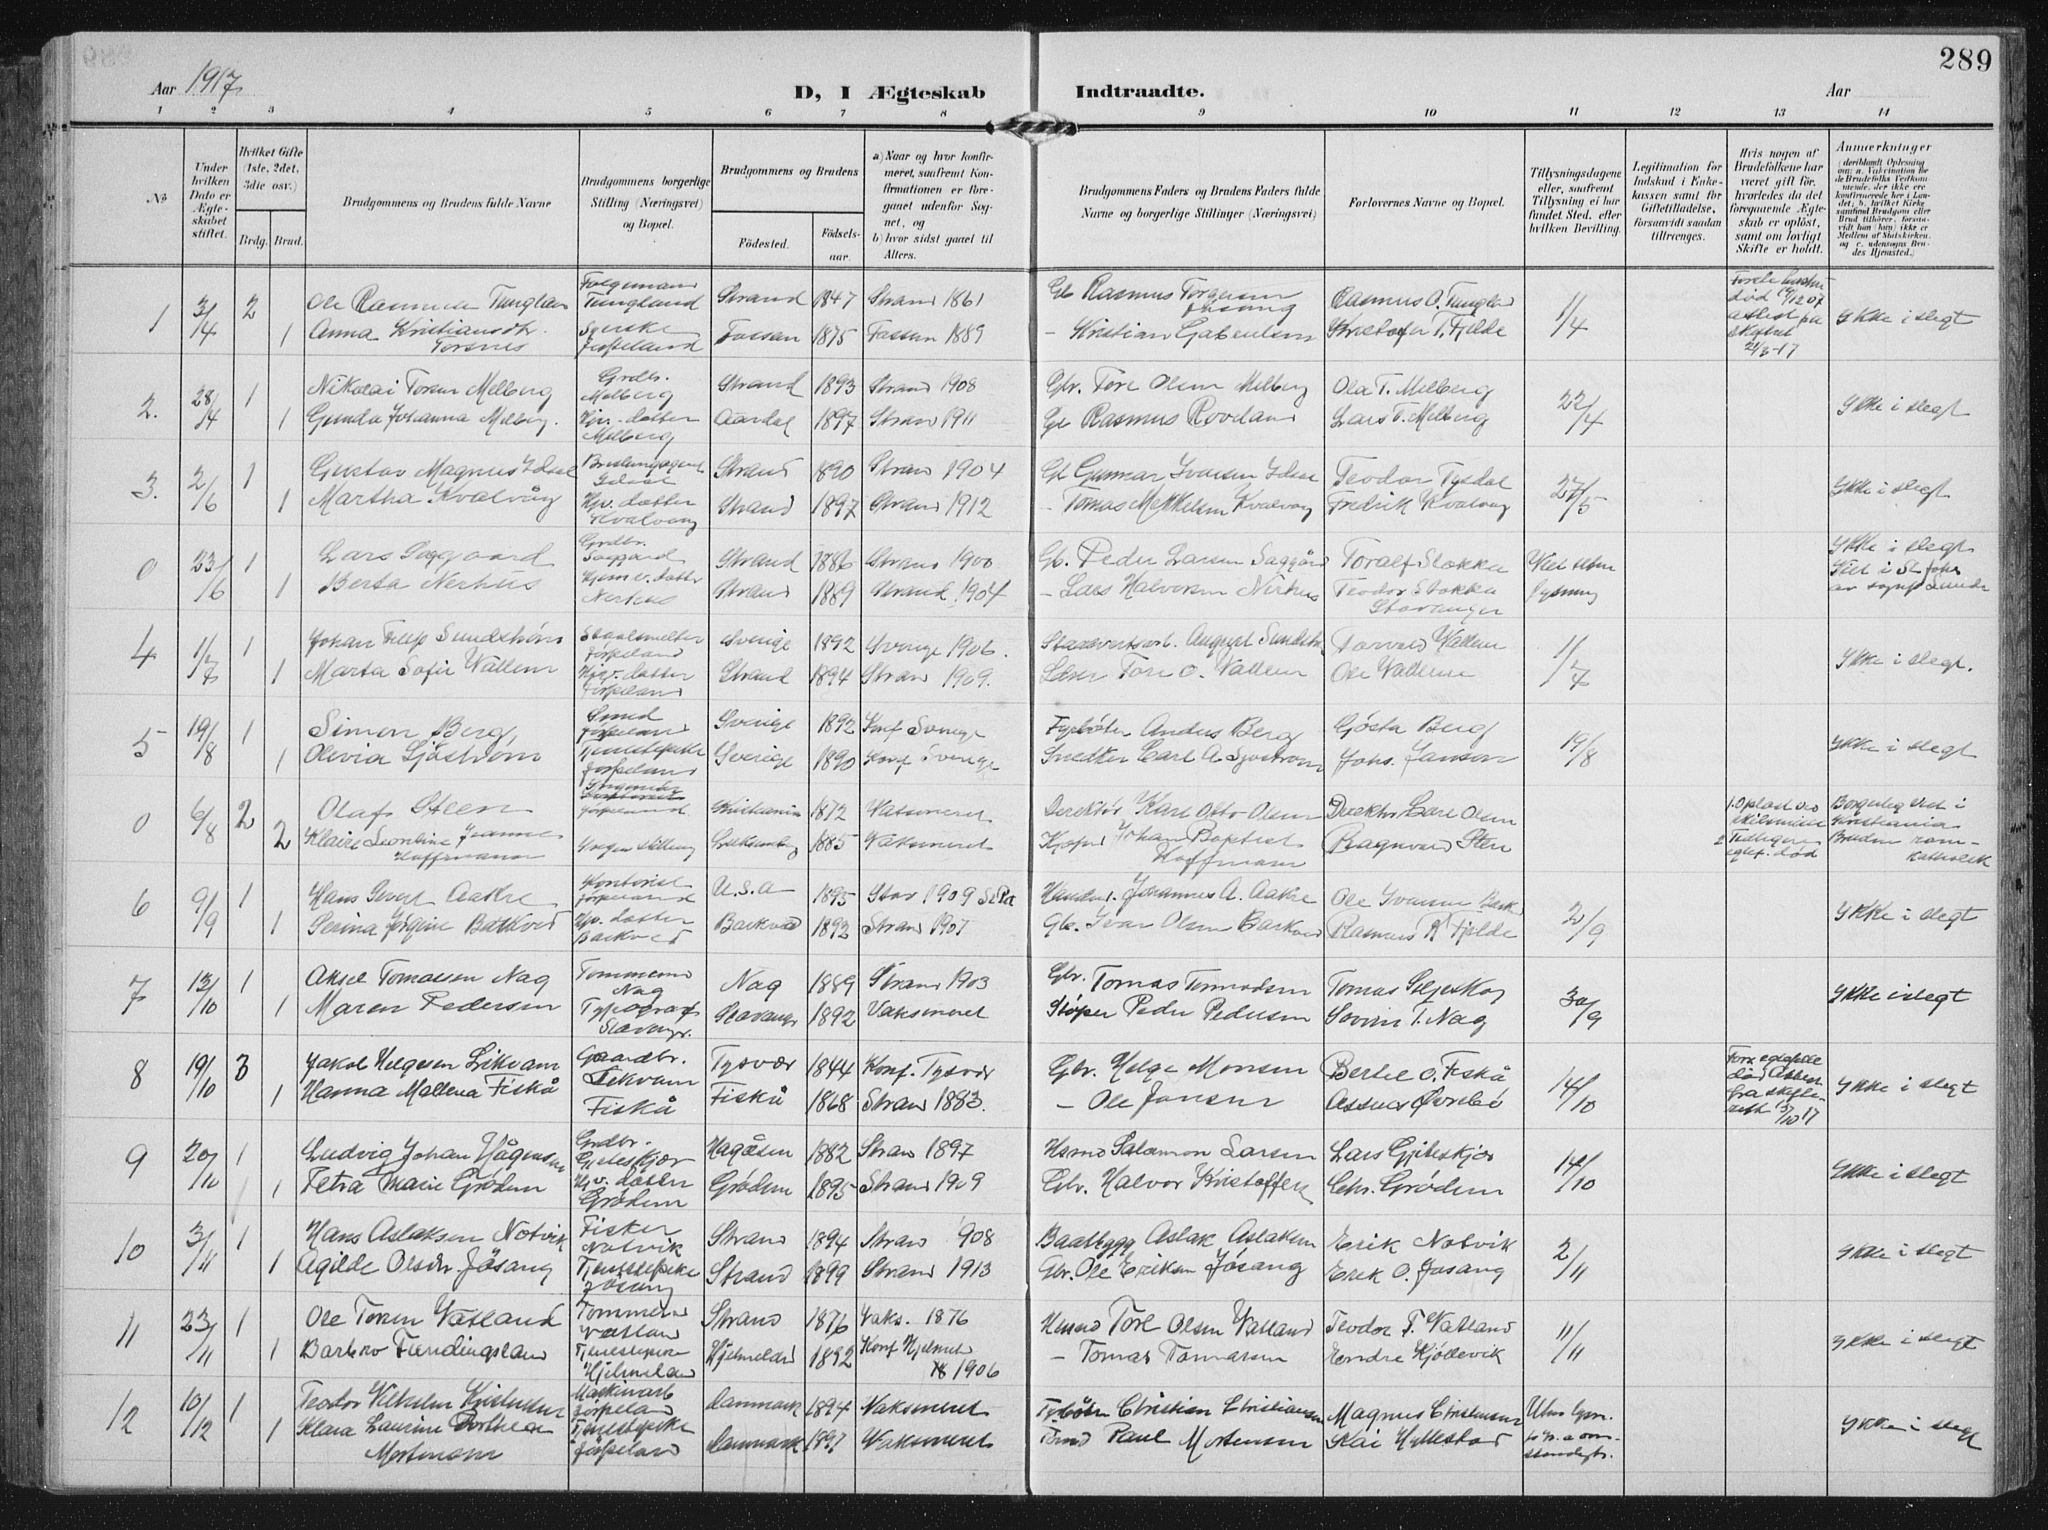 289
Aar 1917
D, I Ægteskab Indtraadte.
Aar
1 2 3 4 5 6 7 8 9 10 11 12 13 14
No
Under hvilken Dato er Ægteskabet stiftet.
Hvilket Gifte (1ste, 2det, 3die osv.)
Brdg. Brud.
Brudgommens og Brudens fulde Navne
Brudgommens borgerlige Stilling (Næringsvei) og Bopæl.
Brudgommens og Brudens
Fødested.
Fødselsaar.
a) Naar og hvor konfirmeret, saafremt Konfirmationen er foregaaet udenfor Sognet, og
b) hvor sidst gaaet til Alters.
Brudgommens Faders og Brudens Faders fulde Navne og borgerlige Stillinger (Næringsvei)
Forlovernes Navne og Bopæl.
Tillysningsdagene eller, saafremt Tillysning ei har fundet Sted, efter hvilken Bevilling.
Legitimation for Indskud i Enkekassen samt for Giftetilladelse, forsaavidt saadan tiltrænges.
Hvis nogen af Brudefolkene har været gift før, hvorledes da det foregaaende Ægteskab er opløst, samt om lovligt Skifte er holdt.
Anmerkninger
1 3/4 2 Ole Rasmussen Tungland Tungland Strand 1847 Strand 1861 Gb Rasmus Torgersen Jøsang Rasmus O. Tungland 1/4 Ikke i slegt
1 Anna Kristiansdtr. Torsnes Jørpeland Fossan 1875 Fossan 1889 - Kristian Gabrielsen Kristofer T. Fjelde
2. 28/4 1 Nikolai Toresen Melberg Grdbr. Melberg Strand 1893 Strand 1908 Gbr. Tore Olsen Melberg Ola T. Melberg 22/4 Ikke i slegt
1 Gunda Johanna Melberg. Hjv. datter Melberg Aardal 1897 Strand 1911 Gb Rasmus Rovland Lars T. Melberg
3. 2/6 1 Gustav Magnus Idsøe Idsøe Strand 1890 Strand 1904 Gb Gunnar Ivarsen Idsøe Teodor Tysdal 27/5 Ikke i slegt
1 Martha Kvalvåg Hjv. datter Kvalvåg Strand 1897 Strand 1912 - Tomas Mikkelsen Kvalvåg Fredrik Kvalvåg
0 23/6 1 Lars Saggaard Grdbr. Saggård Strand 1886 Strand 1900 Gb. Peder Larsen Saggård Toralf Stokka Viet uten lysning Ikke i slegt
1 Berta Nerhus Hjemv. datter Nerhus Strand 1889 Strand 1904 - Lars Halvorsen Nerhus Teodor Stokka Stavanger Viet i St. av sognepr
4 1/7 1 Johan Filip Sundstrøm Staalsmelter Jørpeland Sverige 1892 Sverige 1906. August Sundstr. Torvald Vallem 1/7 Ikke i slegt.
1 Marta Sofie Vallem Hjv. datter Jørpeland Strand 1894 Strand 1909. Tore O. Vallem Ole Vallem
5 19/8 1 Simon Berg, Smed Jørpeland Sverige 1892 Konf Sverige Fyrbøter Anders Berg Gøsta Berg 19/8 Ikke i slegt
1 Olivia Sjöström Tjenestepike Jørpeland Sverige 1890 Konf Sverige Snedker Carl A. Sjøstrøm Johs. Janson
0 6/8 2 Olaf Steen Jørpeland Kristiania 1872 Vaksineret Direktør Karl Otto Olsen Direktør Carl Olsen 1. Opløst ved skilsmisse Borgerlig viet i Kristiania
2 Klaire Leontine Jeanne Hoffmann Ingen stilling Luksemburg 1885 Vaksineret Johan Baptist Hoffmann Ragnvald Steen 2 Tidligere egtef. død Bruden romkatholsk
6 9/9 1 Hans Sivert Aakre Kontorist Jørpeland U.S.A 1895 Stav 1909 St Pet Johannes A. Aakre Ole Ivarsen Bark 2/9 Ikke i slegt
1 Serina Jørgine Barkved Hjv. datter Barkved Barkved 1892 Strand 1907 Gbr. Ivar Olsen Barkved Rasmus R Fjelde
7 13/10 1 Aksel Tomassen Nag Tømmermand Nag Nag 1889 Strand 1903 Gbr. Tomas Tormodsen Tomas Seljeskog 30/9 Ikke i slegt
1 Maren Pedersen Typograf Stavanger. Stavanger 1892 Vaksineret Støper Peder Pedersen Sovrin T. Nag
8 19/10 3 Jakob Helgesen Lekvam Gaardbr. Lekvam Tysvær 1844 Konf. Tysvær Gbr. Helge Monsen Bertel O. Fiskå 14/10 Ikke i slegt
1 Hanna Mallena Fiskå Fiskå Fiskå 1868 Strand 1883. - Ole Jonsen Assser Øvrebø
9 20/10 1 Ludvig Johan Hågensen Grdbr. Gjeteskjær Hagåsen 1882 Strand 1897 Husmd Salomon Larsen Lars Gjiteskjær 14/10 Ikke i slegt
1 Petra Marie Grødem Hjv. datter Grødem Grødem 1895 Strand 1909 Gbr. Halvor Kristoffersen Chr. Grødem
10 3/11 1 Hans Aslaksen Notvik Fisker Notvik Strand 1894 Strand 1908 Baatbygg Aslak Aslaksen Erik Notvik 2/11 Ikke i slegt
1 Agilde Olsdtr. Jøsang Tjenestepike Jøsang Strand 1899 Strand 1913 Gbr. Ole Eriksen Jøsang Erik O. Jøsang
11 23/11 1 Ole Toresen Vatland Tømmermd Vatland Strand 1876 Vaks. 1876 Husmd Tore Olsen Vatland Teodor T. Vatland 11/11 Ikke i slegt
1 Barbro Tjenestepike Hjelmeland Hjelmeland 1892 Konf Hjelmel 1906 - Tomas Tomassen Endre Kjøllevik
12 10/12 1 Teodor Vilhelm Kristensen Maskinarb Jørpeland Danmark 1894 Vaksineret Fyrbøter Christian Christiansen Magnus Christensen Ikke i slegt
1 Klara Laurine Dorthea Mortensen Tjenestepike Jørpeland Danmark 1897 Vaksineret Paul Mortensen Kai Hyllestad